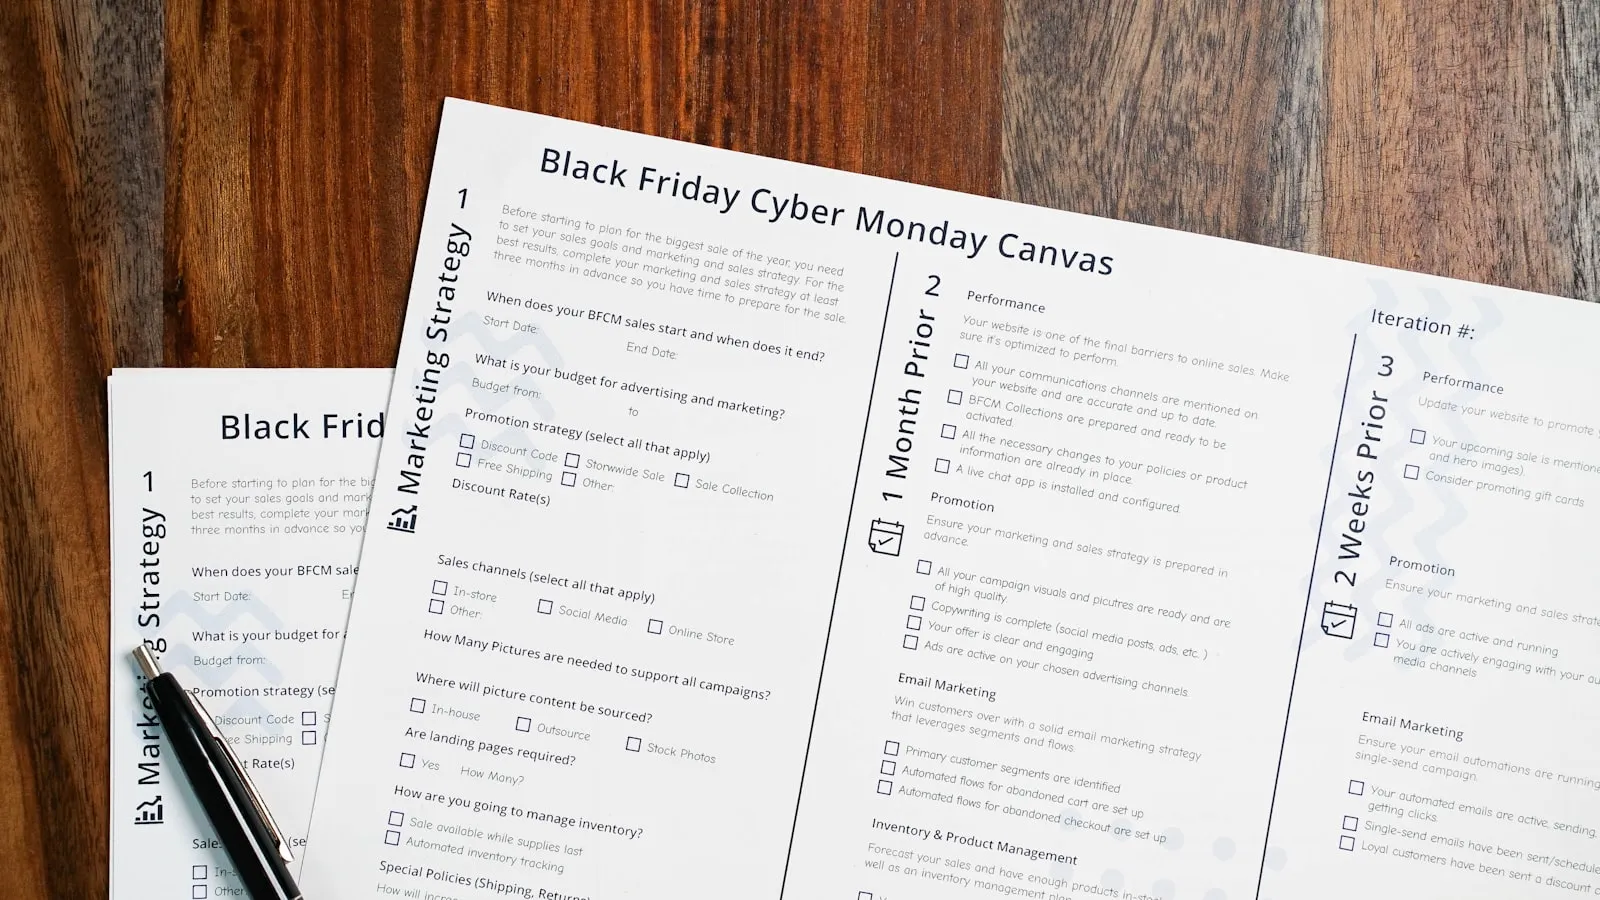 Black Friday Cyber Monday Canvas
Iteration #:
1
Marketing Strategy
Before starting to plan for the biggest sale of the year, you need
to set your sales goals and marketing and sales strategy. For the
best results, complete your marketing and sales strategy at least
three months in advance so you have time to prepare for the sale.
When does your BFCM sales start and when does it end?
Start Date:
End Date:
What is your budget for advertising and marketing?
Budget from:
to
Promotion strategy (select all that apply)
Discount Code
Storwwide Sale
Sale Collection
Free Shipping
Other:
Discount Rate(s)
Sales channels (select all that apply)
In-store
Social Media
Online Store
Other:
How Many Pictures are needed to support all campaigns?
Where will picture content be sourced?
In-house
Outsource
Stock Photos
Are landing pages required?
Yes
How Many?
How are you going to manage inventory?
Sale available while supplies last
Automated inventory tracking
Special Policies (Shipping, Returns
How will
2
1 Month Prior
Performance
Your website is one of the final barriers to online sales. Make
sure it's optimized to perform.
All your communications channels are mentioned on
your website and are accurate and up to date.
BFCM Collections are prepared and ready to be
activated.
All the necessary changes to your policies or product
information are already in place.
A live chat app is installed and configured
Promotion
Ensure your marketing and sales strategy is prepared in
advance.
All your campaign visuals and picutres are ready and are
of high quality.
Copywriting is complete (social media posts, ads, etc. )
Your offer is clear and engaging
Ads are active on your chosen advertising channels
Email Marketing
Win customers over with a solid email marketing strategy
that leverages segments and flows.
Primary customer segments are identified
Automated flows for abandoned cart are set up
Automated flows for abandoned checkout are set up
Inventory & Product Management
Forecast your sales and have enough products in-sto
well as an inventory management plan
3
2 Weeks Prior
Performance
Update your website to promote
Your upcoming sale is mentione
and hero images).
Consider promoting gift cards
Promotion
Ensure your marketing and sales strate
All ads are active and running
You are actively engaging with your au
media channels
Email Marketing
Ensure your email automations are running
single-send campaign.
Your automated emails are active, sending,
getting clicks.
Single-send emails have been sent/schedule
Loyal customers have been sent a discount c
Black Frid
1
Marketing Strategy
Before starting to plan for the big
to set your sales goals and mark
best results, complete your mark
three months in advance so you
When does your BFCM sale
Start Date:
What is your budget for
Budget from:
Promotion strategy (se
Discount Code
Free Shipping
t Rate(s)
Sales
(se
In-s
Other